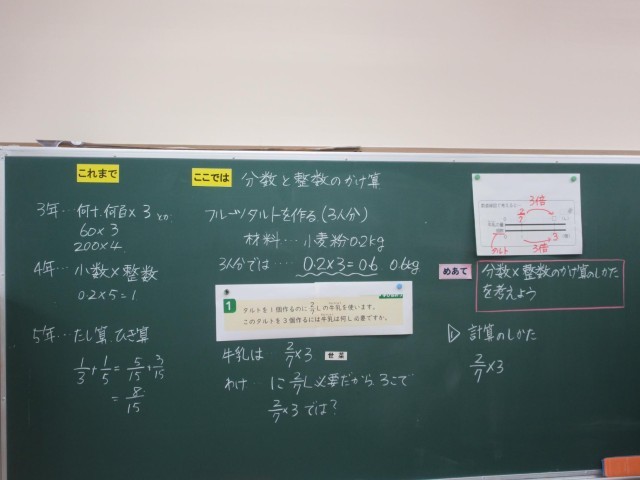 これまで
3年…何十、何百×3 とか
60×3
200×4
4年…小数×整数
0.2×5=1
5年…たし算、ひき算
1/3+1/5=5/15+3/15
=8/15
ここでは 分数と整数のかけ算
フルーツタルトを作る(3人分)
材料…小麦粉0.2kg
3人分では……0.2×3=0.6 0.6kg
1 タルトを1個作るのに2/7Lの牛乳を使います。
このタルトを3個作るには牛乳は何L必要ですか。
牛乳は 2/7×3
わけ…1こ2/7L必要だから、3こで
2/7×3では?
3倍
2/7
3
タルト 3倍
めあて 分数×整数のかけ算のしかた
を考えよう
① 計算のしかた
2/7×3